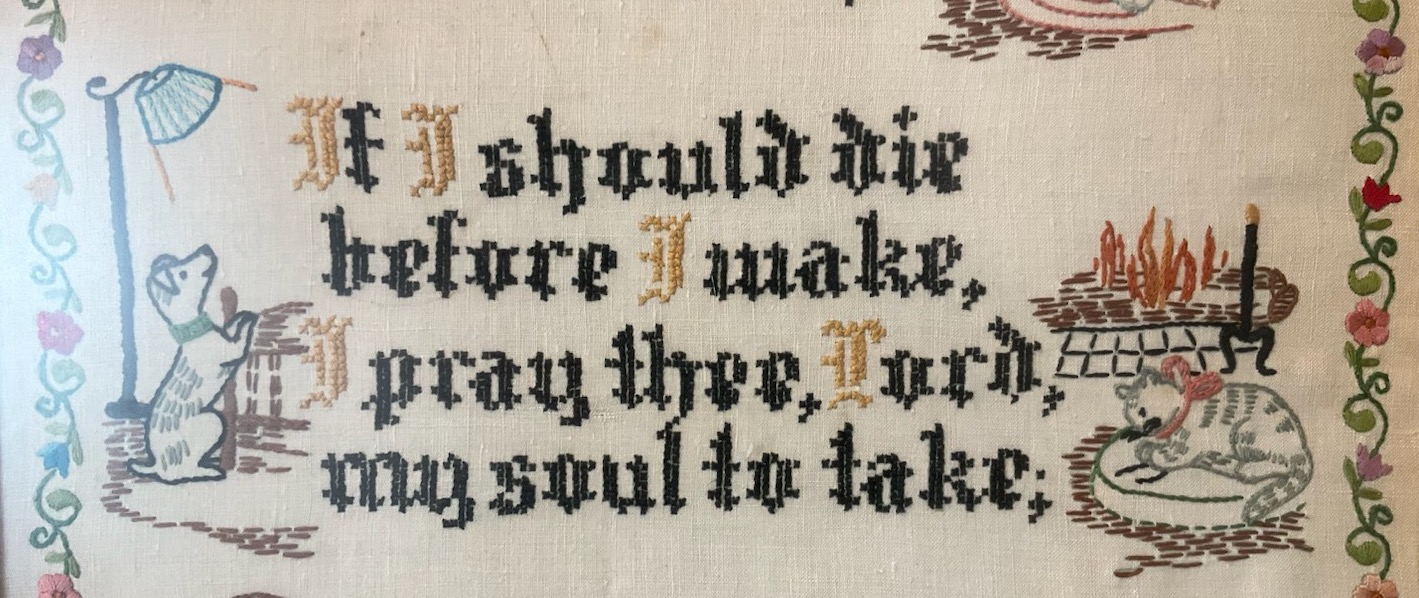 If I should die
before I wake,
I pray thee, Lord,
my soul to take;